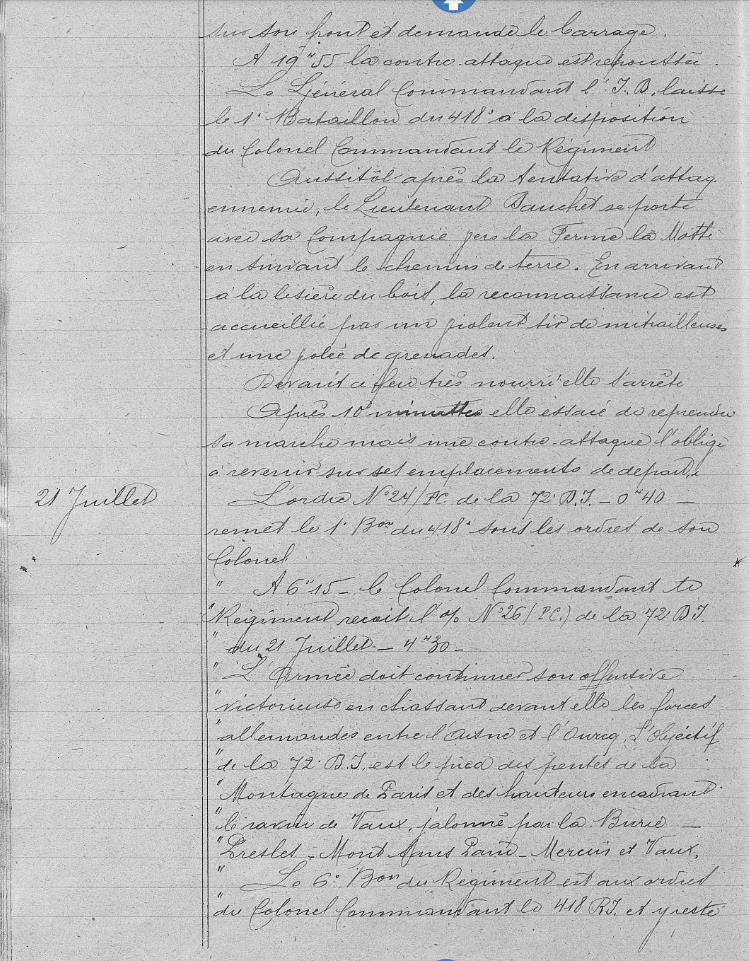 sur son front et demande le barrage.
A 19h55 la contre-attaque est repoussée.
Le Général Commandant l'I.D. laisse
le 1e Bataillon du 418e à la disposition
du Colonel Commandant le Régiment
Aussitôt après la tentative d'attaq
ennemie, le Lieutenant Bauchet se porte
avec sa Compagnie vers la Ferme la Motte
en suivant le chemin de terre. En arrivant
à la lisière du bois, la reconnaissance est
accueillie par un violent tir de mitrailleuses
et une volée de grenades.
Devant ce feu très nourri elle s'arrête
Après 10 minuttes elle essaie de reprendre
sa marche mais une contre-attaque l'oblige
à revenir sur ses emplacements de départ.
21 Juillet
L'ordre N°24/PC de la 72e D.I. - 0h40 -
remet le 1e Bon du 418e sous les ordres de son
Colonel
" A 6h15 - le Colonel Commandant le
"Régiment reçoit l'o/o N°26/P.C.) de la 72 D.I.
" du 21 Juillet - 4h30 -
" L'Armée doit continuer son offensive
"victorieuse en chassant devant elle les forces
"allemandes entre l'Aisne et l'Ourcq. L'Objectif
"de la 72e D.I. est le pied des pentes de la
"Montagne de Paris et des hauteurs encadrant
"le ravin de Vaux, jalonné par la Burie -
"Presles - Mont Sans Pain - Mercin et Vaux,
" Le 6e Bon du Régiment est aux ordres
"du Colonel Commandant le 418 R.I. et y reste